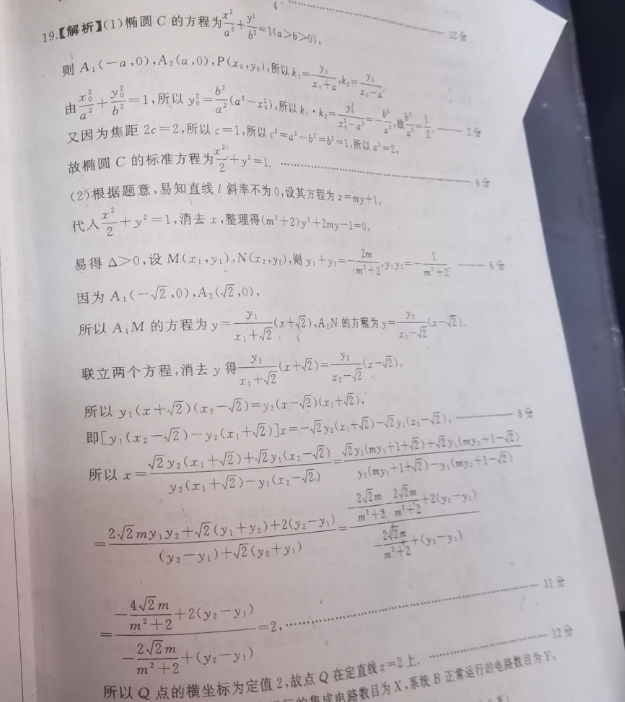 19.【解析】(1)椭圆 C 的方程为x²/a²+y²/b²=1(a>b>0),
12分
则 A₁(-a,0),A₂(a,0),P(x₀,y₀),所以 k₁=y₀/(x₀+a),k₂=y₀/(x₀-a),
由x₀²/a²+y₀²/b²=1,所以 y₀²=b²/a²(a²-x₀²),所以 k₁·k₂=y₀²/(x₀²-a²)=-b²/a²,故b²/a²=1/2. 2分
又因为焦距 2c=2,所以 c=1,所以 c²=a²-b²=b²=1,所以 a²=2,
故椭圆 C 的标准方程为x²/2+y²=1. 4分
(2)根据题意,易知直线 l 斜率不为 0,设其方程为 x=my+1,
代入x²/2+y²=1,消去 x,整理得(m²+2)y²+2my-1=0,
易得 Δ>0,设 M(x₁,y₁),N(x₂,y₂),则 y₁+y₂=-2m/(m²+2),y₁y₂=-1/(m²+2). 6分
因为 A₁(-√2,0),A₂(√2,0),
所以 A₁M 的方程为 y=y₁/(x₁+√2)(x+√2),A₂N 的方程为 y=y₂/(x₂-√2)(x-√2),
联立两个方程,消去 y 得y₁/(x₁+√2)(x+√2)=y₂/(x₂-√2)(x-√2),
所以 y₁(x+√2)(x₂-√2)=y₂(x-√2)(x₁+√2),
即[y₁(x₂-√2)-y₂(x₁+√2)]x=-√2y₂(x₁+√2)-√2y₁(x₂-√2), 8分
所以 x=(√2y₂(x₁+√2)+√2y₁(x₂-√2))/(y₂(x₁+√2)-y₁(x₂-√2))=(√2y₂(my₁+1+√2)+√2y₁(my₂+1-√2))/(y₂(my₁+1+√2)-y₁(my₂+1-√2))
=(2√2my₁y₂+√2(y₁+y₂)+2(y₂-y₁))/((y₂-y₁)+√2(y₂+y₁))=(-2√2m/(m²+2)-2√2m/(m²+2)+2(y₂-y₁))/(-2√2m/(m²+2)+(y₂-y₁))
=(-4√2m/(m²+2)+2(y₂-y₁))/(-2√2m/(m²+2)+(y₂-y₁))=2, 11分
所以 Q 点的横坐标为定值 2,故点 Q 在定直线 x=2 上. 12分
的集成电路数目为 X,系统 B 正常运行的电路数目为 Y,